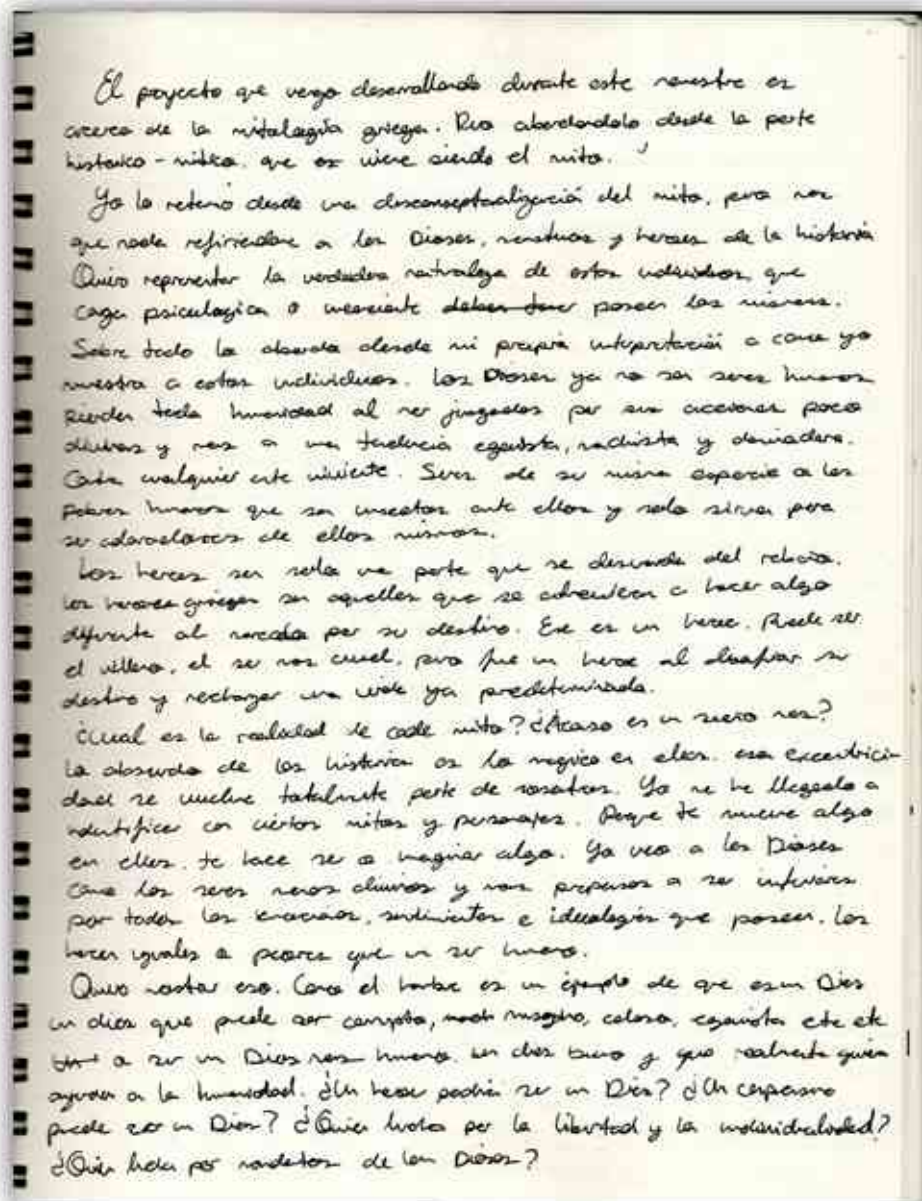 El proyecto que vengo desarrollando durante este semestre es
acerca de la mitología griega. Pero abordandolo desde la parte
historico - mítica. que es viene siendo el mito.
Yo lo retomo desde una desconseptualización del mito, pero mas
que nada refiriendome a los Dioses, monstruos y heroes de la historia
Quiero representar la verdadera naturaleza de estos individuos, que
carga psicologica o consciente deben tener poseen los mismos.
Sobre todo lo abordo desde mi propia interpretación a como yo
muestro a estos individuos. Los Dioses ya no son seres humanos
pierden toda humanidad al ser juzgados por sus acciones poco
divinas y mas a una tendencia egoista, machista y dominadora.
Contra cualquier ente viviente. Seres de su misma especie a los
pobres humanos que son insectos ante ellos y solo sirven para
ser adoradores de ellos mismos.
Los heroes son solo una parte que se desprende del rebaño.
los heroes griegos son aquellos que se adventuran a hacer algo
diferente al marcado por su destino. Ese es un heroe. Puede ser
el villano, el ser mas cruel, pero fue un heroe al desafiar su
destino y rechazar una vida ya predeterminada.
¿Cual es la realidad de cada mito? ¿Acaso es un sueño mas?
Lo absurdo de las historias es lo magico en ellas. esa excentrici-
dad se vuelve totalmente parte de nosotros. Yo me he llegado a
identificar con ciertos mitos y personajes. Porque te mueve algo
en ellos. te hace ser o imaginar algo. Yo veo a los Dioses
como los seres menos divinos y mas propensos a ser inferiores
por todas las emociones, sentimientos e ideologias que poseen. Los
hacen iguales o peores que un ser humano.
Quiero mostrar eso. Como el hombre es un ejemplo de que es un Dios
un dios que puede ser corrupto, misogino, celoso, egoista etc etc
a ser un Dios mas humano. un dios bueno y que realmente quiera
ayudar a la humanidad. ¿Un heroe podria ser un Dios? ¿Un campesino
puede ser un Dios? ¿Quien lucha por la libertad y la individualidad?
¿Quien lucha por mandatos de los Dioses?